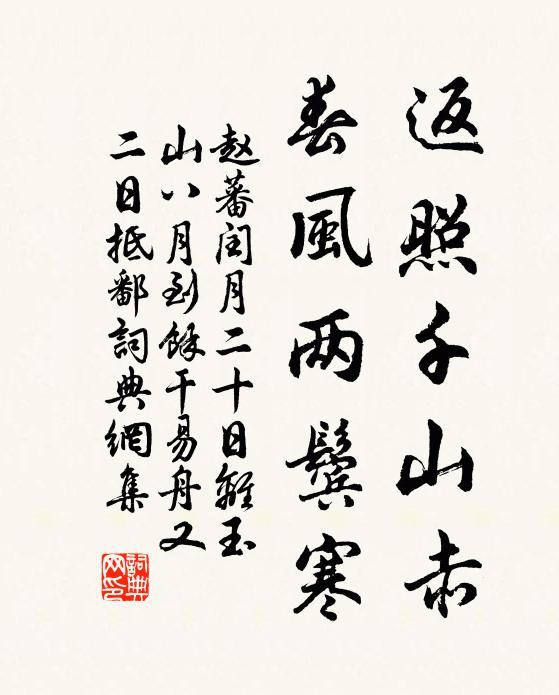 返照千山赤
春風两鬓寒
赵蕃闰月二十日離玉
山八月到餘干易舟又
二日抵鄱詞典網集
詞典
网印